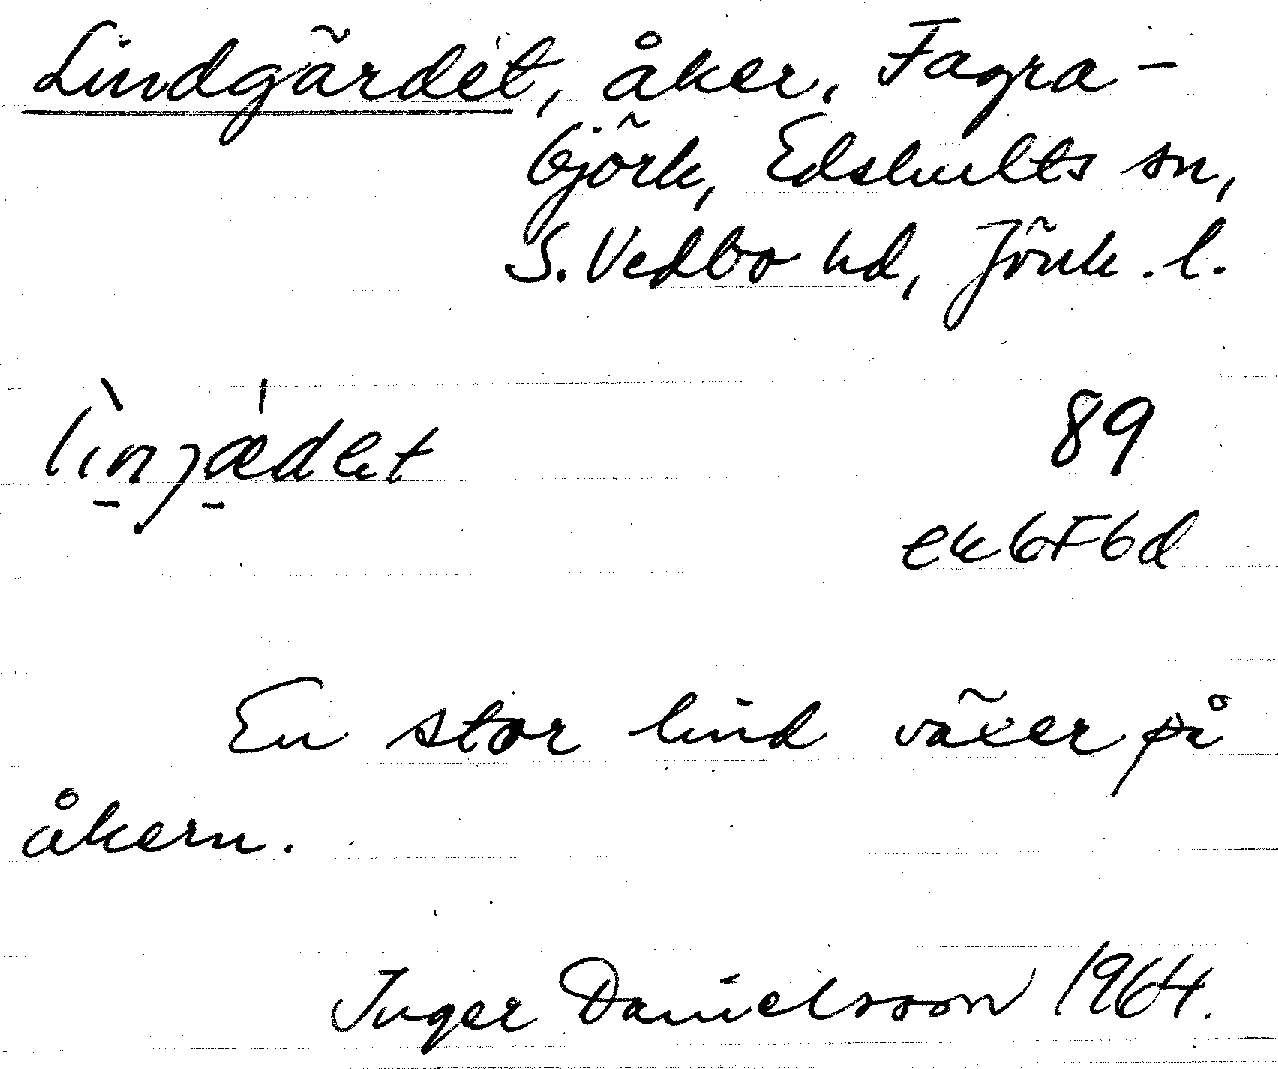 Lindgärdet, åker, Fagra-
björk, Edshults sn,
S. Vedbo hd, Jönk. l.
89
ek6F6d
En stor lind växer på
åkern.
Inger Danielsson 1964.